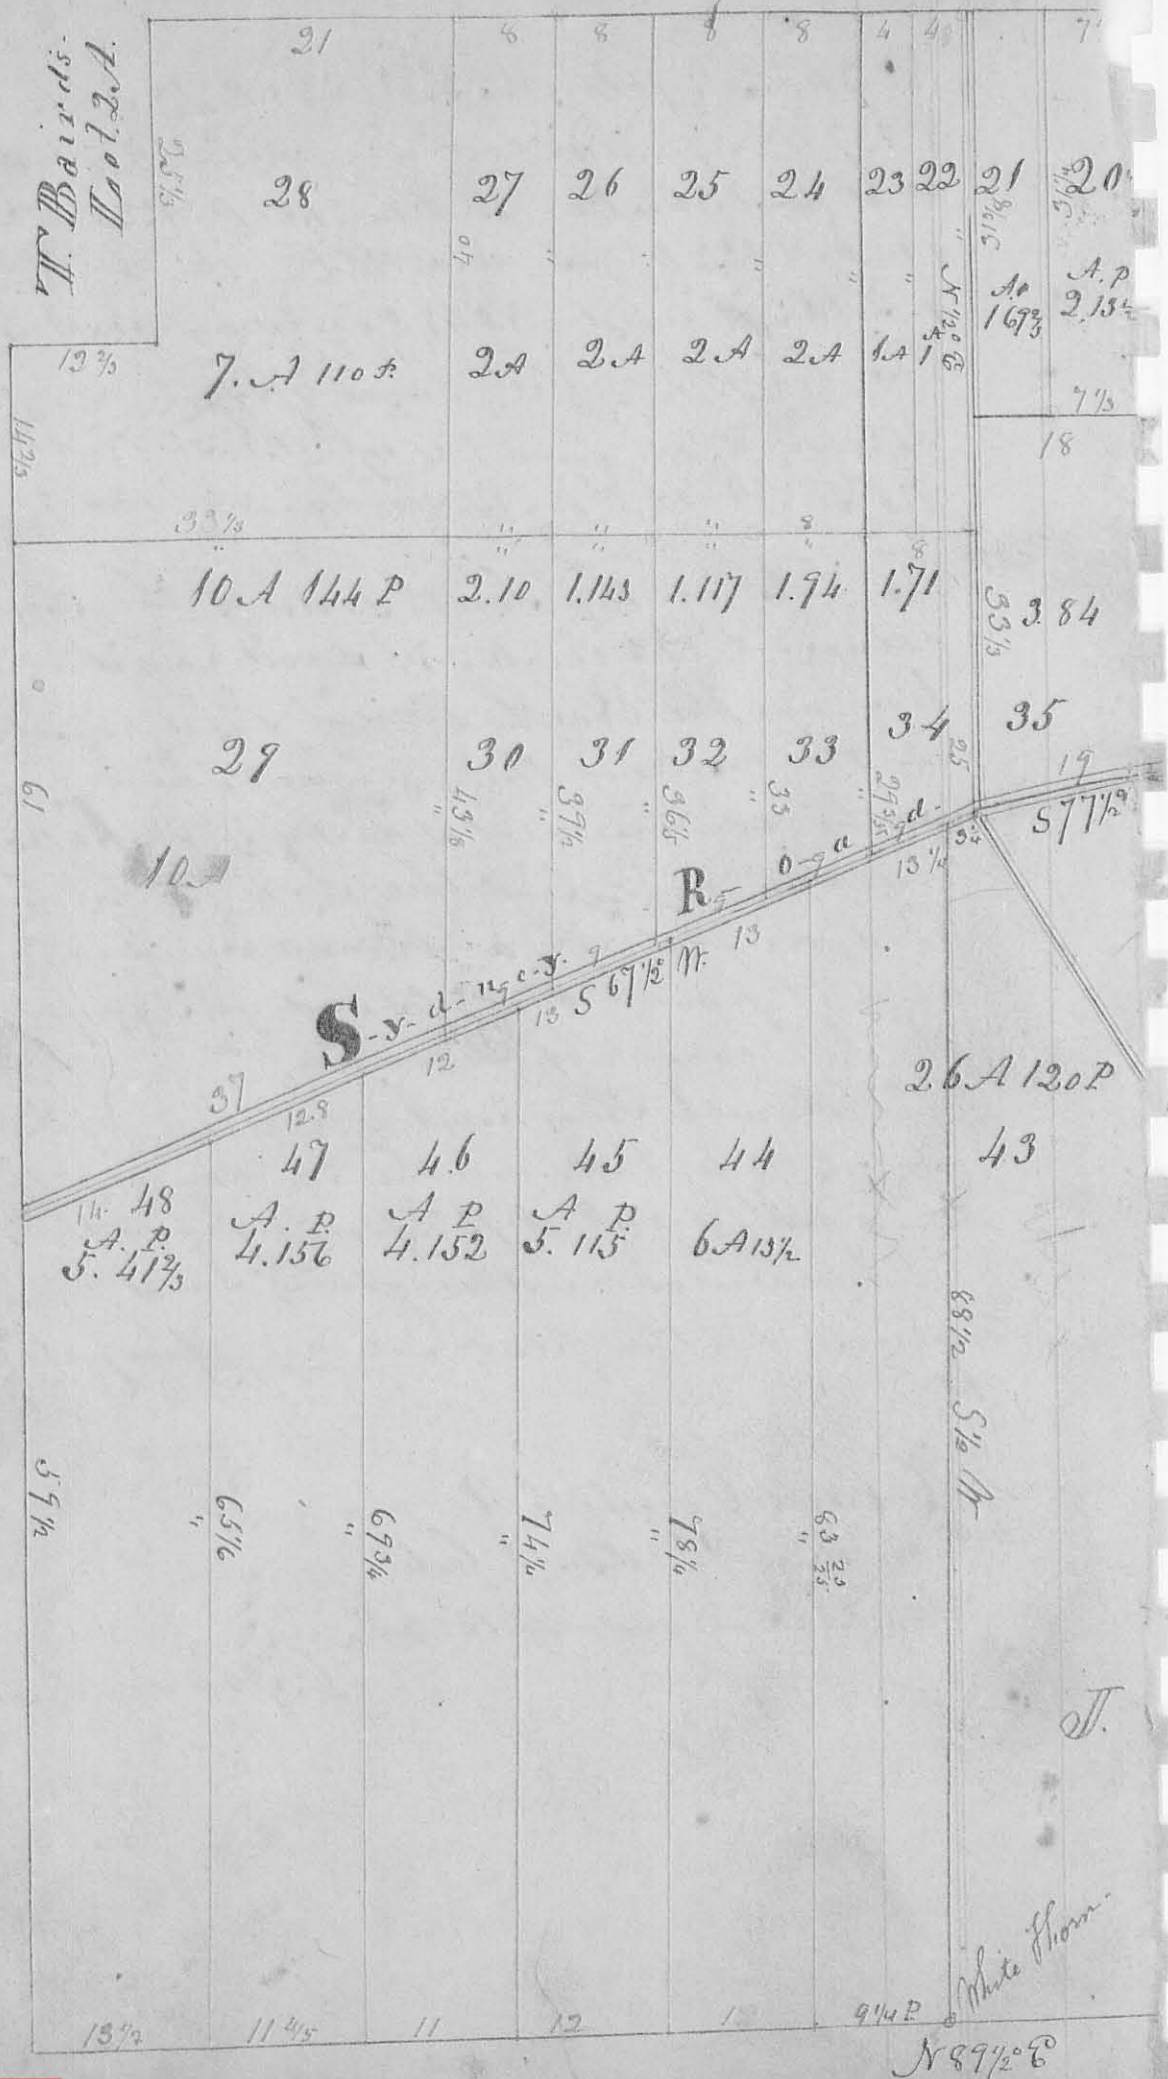 T. Bairds.
Lot. 2 A.
21 8 8 8 8 4 4
25 1/3
28 27 26 25 24 23 22 21 20
40
31 7/8
N 1/2° E
A. P
2.13 1/2
169 2/3
12 2/3
7. A 110 P. 2 A 2 A 2 A 2 A 1 A 1 A
7 1/3
14 2/3
18
33 1/3 8
8
10 A 144 P 2.10 1.143 1.117 1.94 1.71
33 1/3 3. 84
29 30 31 32 33 34 35
25
19
61
43 1/3 39 1/2 36 1/5 33 29 3/5
S 77 1/2°
10 A
S-y-d-n-e-y. R-o-a-d.
13 1/4
13
S 67 1/2° W.
13
12
37
12.8
26 A 120 P
47 46 45 44 43
14 48
A. P.
5. 41 2/3
A. P.
4.156
A P
4.152
A P.
5. 115
6 A 13 1/2
88 1/2 S 1/2 W
59 1/2 65 1/6 69 3/4 74 1/4 78 1/4 83 23/25
T.
White Thorn.
13 4/7 11 4/5 11 12 9 1/4 P
N 89 1/2° E